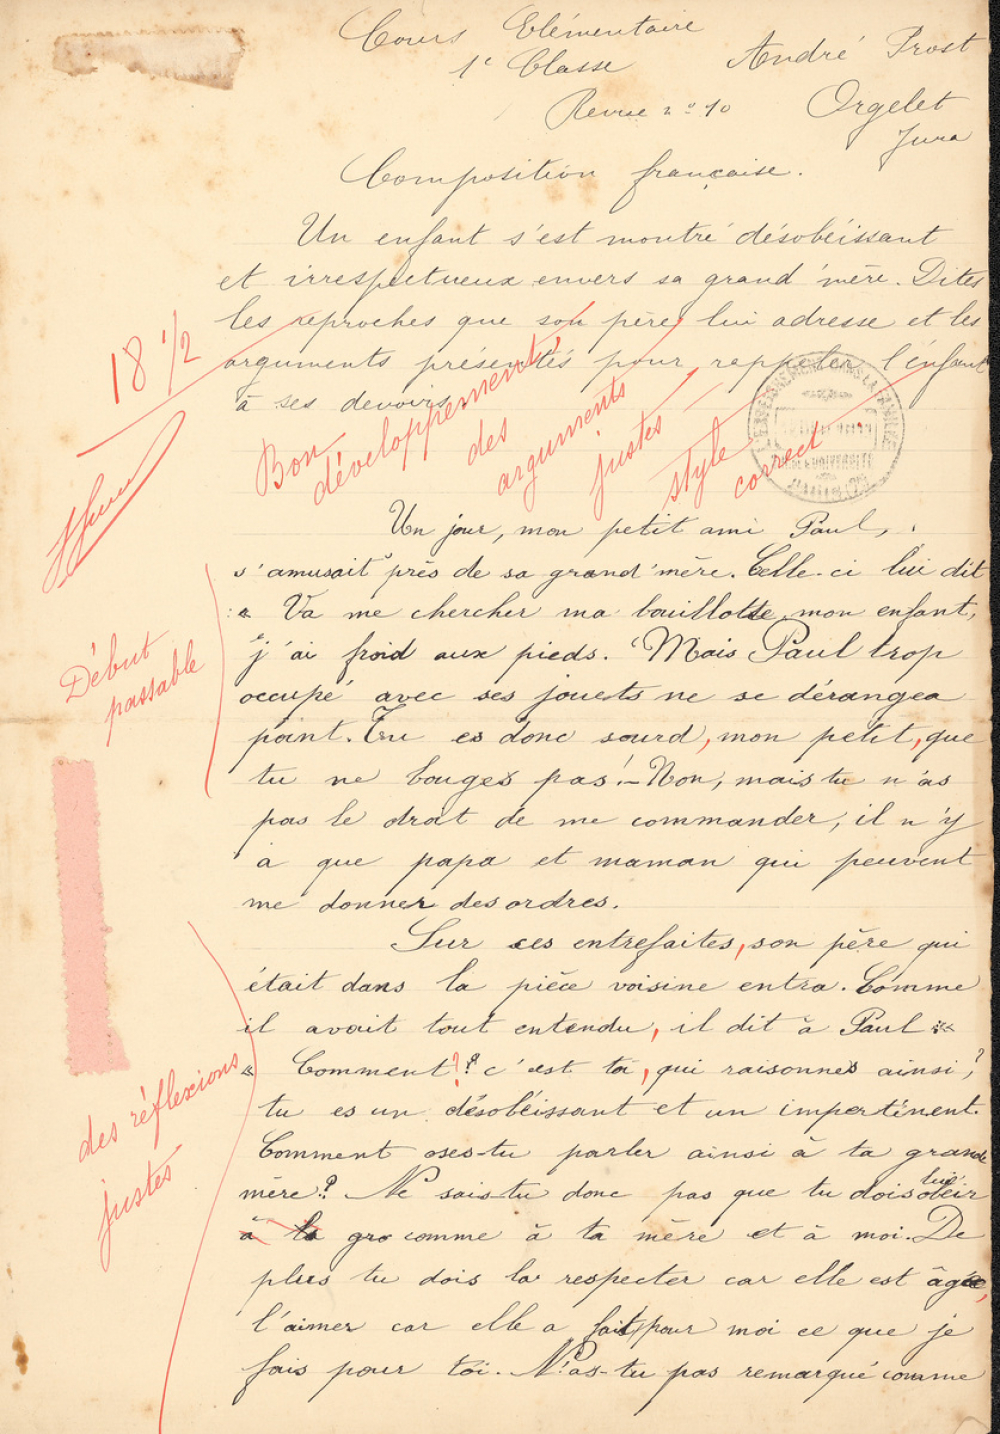 Cours Elémentaire
1e Classe
André Prost
Revue no 10
Orgelet
Jura
Composition française.
Un enfant s'est montré désobéissant
et irrespectueux envers sa grand'mère. Dites
les reproches que son père lui adresse et les
arguments présentés pour rappeler l'enfant
à ses devoirs.
18 1/2
Bon
développement
des
arguments
justes
style
correct
Un jour, mon petit ami Paul,
s'amusait près de sa grand'mère. Celle-ci lui dit
: « Va me chercher ma bouillotte, mon enfant,
"j'ai froid aux pieds. "Mais Paul trop
occupé avec ses jouets ne se dérangea
point. Tu es donc sourd, mon petit, que
tu ne bouges pas! - Non, mais tu n'as
pas le droit de me commander, il n'y
a que papa et maman qui peuvent
me donner des ordres.
Début
passable
Sur ces entrefaites, son père qui
était dans la pièce voisine entra. Comme
il avait tout entendu, il dit à Paul :
« Comment? c'est toi, qui raisonnes ainsi,?
tu es un désobéissant et un impertinent.
Comment oses-tu parler ainsi à ta grand
mère? Ne sais-tu donc pas que tu dois lui obéir
à ta gra comme à ta mère et à moi. De
plus tu dois la respecter car elle est âgée,
l'aimer car elle a fait pour moi ce que je
fais pour toi. N'as-tu pas remarqué comme
des réflexions
justes